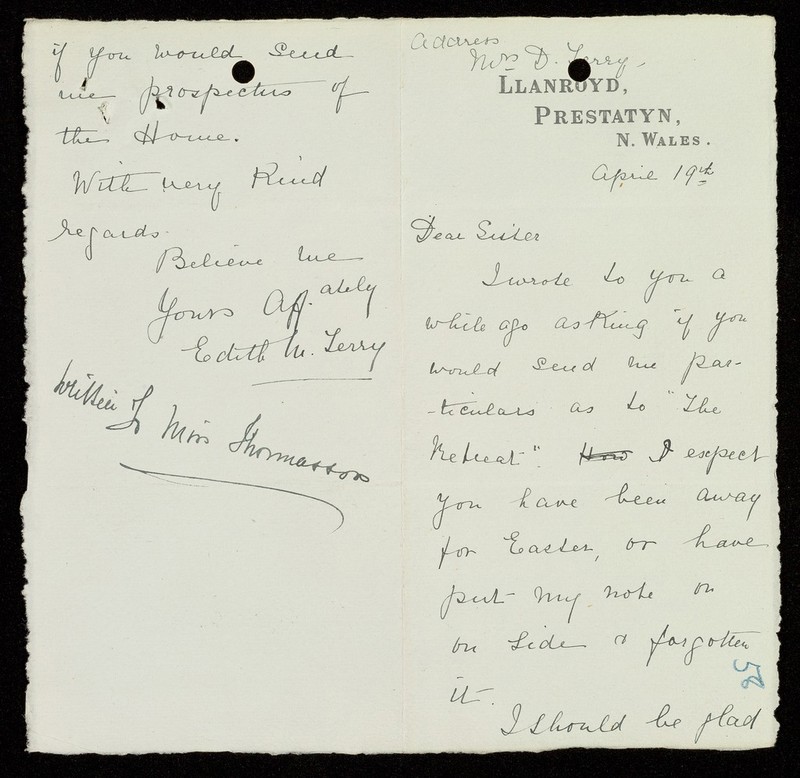 Address
Mrs D. Terry.
LLANROYD,
PRESTATYN,
N. WALES.
April 19th
Dear Sister
I wrote to you a
while ago asking if you
would send me par-
-ticulars as to "The
Retreat". How I expect
you have been away
for Easter, or have
put my note on
on side & forgotten
it.
I should be glad
58
if you would send
me prospectus of
the Home.
With very Kind
regards.
Believe me
Yours Aff.ately
Edith M. Terry
Written to
Miss Thomasson